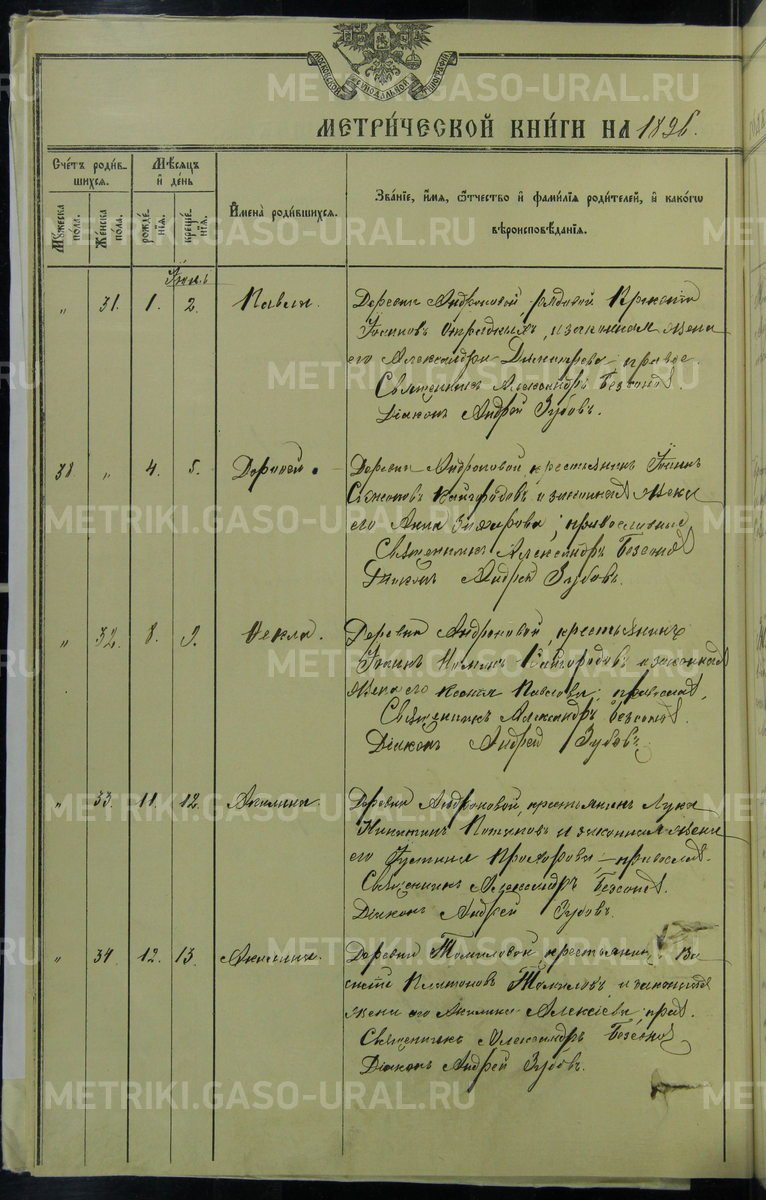 МОСКОВСКОЙ СѴНОДАЛЬНОЙ ТИПОГРАФІИ
МЕТРИ́ЧЕСКОЙ КНИ́ГИ НА 1896.
Счéтъ роди́вшихся.
Мꙋ́жеска пóла.
Жéнска пóла.
Мѣ́сяцъ и̑ дéнь
рождéнїѧ.
крещéнїѧ.
И̑менà роди́вшихся.
Звáнїе, и̑́мѧ, ѻ̑́тчество и̑ фами́лїѧ роди́телей, и̑ какóгѡ вѣроисповѣ́данїѧ.
Іюнь
„ 31. 1. 2. Павла. Деревни Андроновой, рядовой
Іоанновъ и законная жена
его Александра Димитрева
Священникъ Александръ Безсонов.
Діаконъ Андрей Зубовъ.
38 „ 4. 5. Дорофей. Деревни Андроновой крестьянинъ Іоаннъ
Кайгородовъ и законная жена
его Анна Захарова; православные
Священникъ Александръ Безсонов
Діаконъ Андрей Зубовъ.
„ 32. 8. 9. Ѳекла. Деревни Андроновой, крестьянинъ
Кайгородовъ и законная
жена его Ксенія Павлова; правосл.
Священникъ Александръ Безсонов.
Діаконъ Андрей Зубовъ
„ 33. 11. 12. Акилина. Деревни Андроновой, крестьянинъ Лука
Никитинъ Потаповъ и законная жена
его Іустинія Прохорова, – правосл.
Священникъ Александръ Безсонов.
Діаконъ Андрей Зубовъ.
„ 34. 12. 13. Акилина. Деревни Томиловой крестьянинъ Ва
силій Платоновъ Томиловъ и законная
жена его Акилина Алексіева; прав.
Священникъ Александръ Безсонов
Діаконъ Андрей Зубовъ.
METRIKI.GASO-URAL.RU